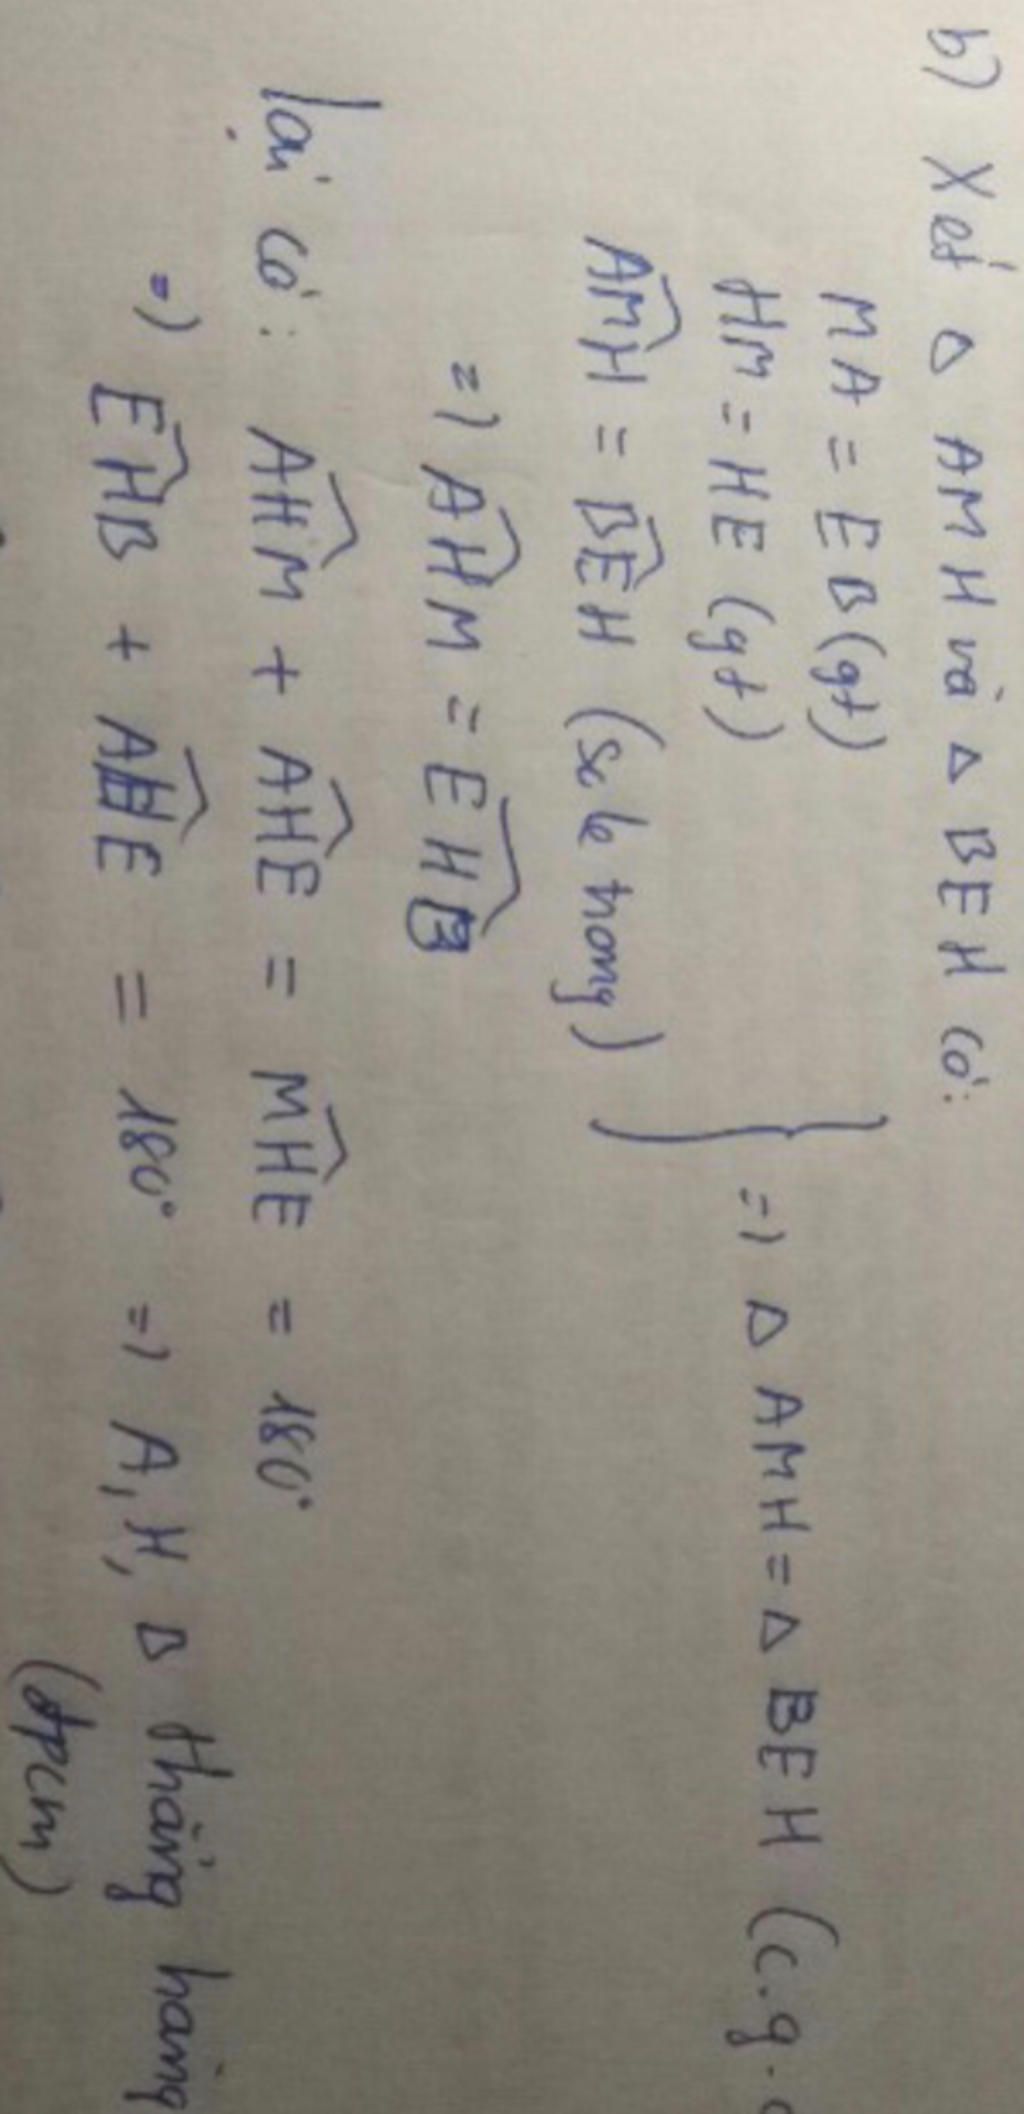 b) Xét Δ AMH và Δ BEH có:
MA = EB (gt)
HM = HE (gt)
=> Δ AMH = Δ BEH (c.g.
\widehat{AMH} = \widehat{BEH} (so le trong)
=> \widehat{AHM} = \widehat{EHB}
lại có: \widehat{AHM} + \widehat{AHE} = \widehat{MHE} = 180°
=> \widehat{EHB} + \widehat{AHE} = 180° => A, H, B thẳng hàng
(đpcm)